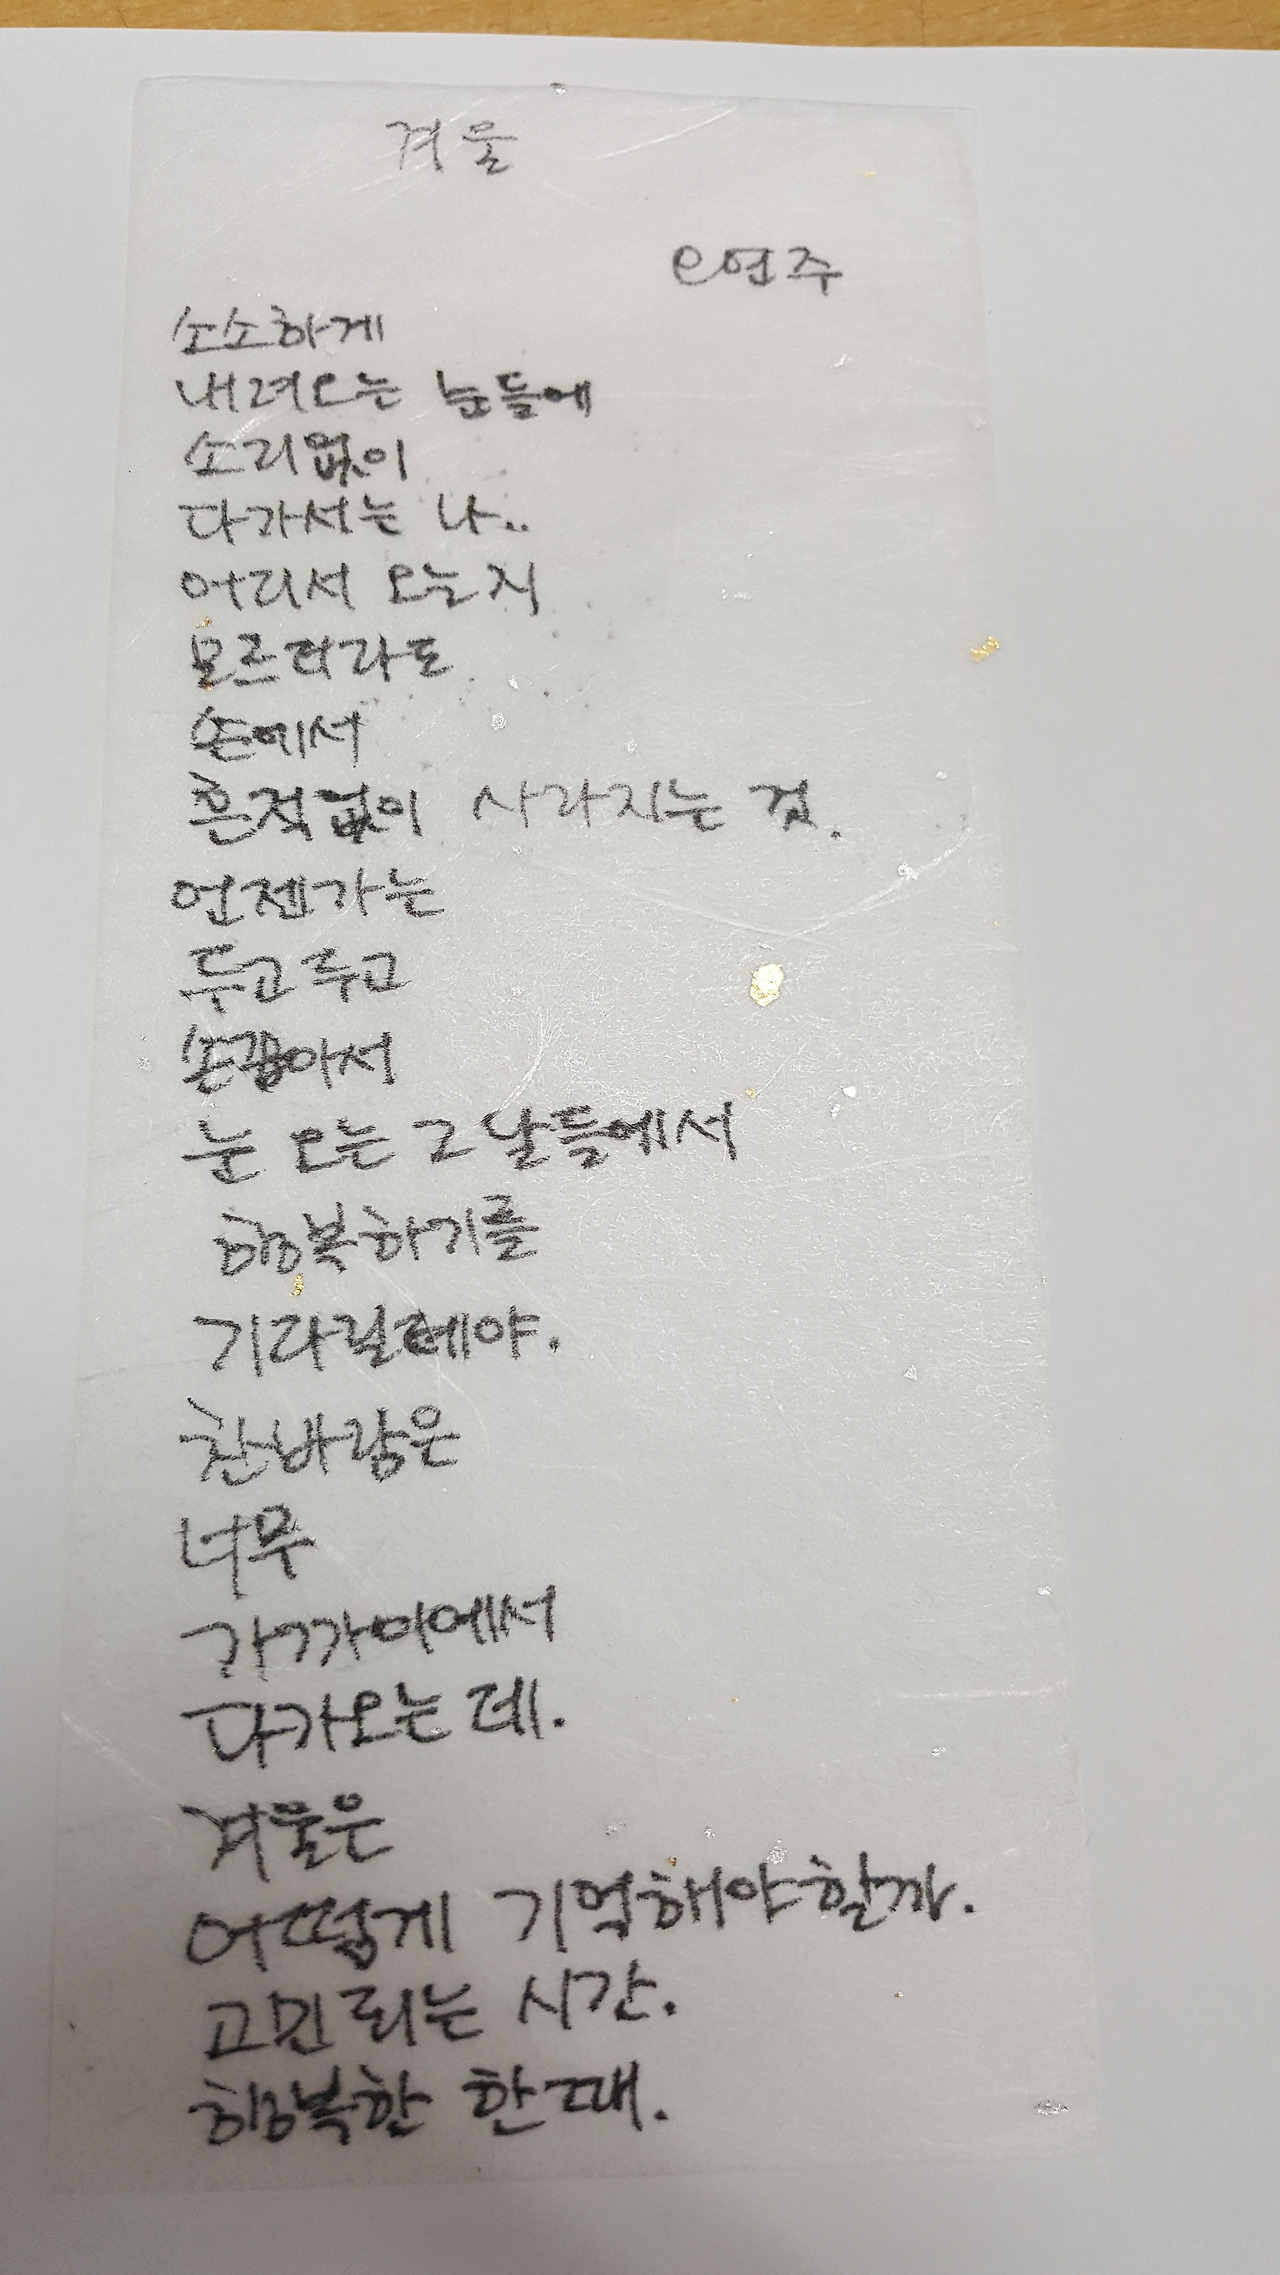 겨울
e연주
소소하게
내려오는 눈들에
소리없이
다가서는 나..
어디서 오는지
모르더라도
손에서
흔적없이 사라지는 것.
언젠가는
두고두고
손꼽아서
눈 오는 그날들에서
행복하기를
기다릴테야.
찬바람은
너무
가까이에서
다가오는데.
겨울은
어떻게 기억해야할까.
고민되는 시간.
행복한 한때.